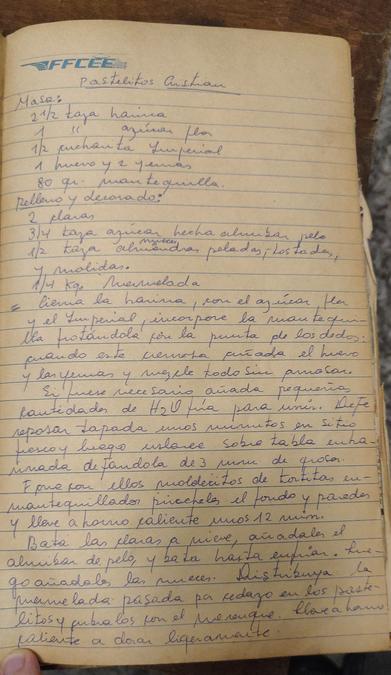 FFCCEE
Pastelitos Cristian
Masa:
2 1/2 taza harina
1 " azúcar flor
1/2 cucharita Imperial
1 huevo y 2 yemas
80 gr. mantequilla.
Relleno y decorado:
2 claras
3/4 taza azúcar hecha almíbar pelo
nueces
1/2 taza almendras peladas, tostadas,
y molidas.
1/4 kg. mermelada
= Cierna la harina, con el azúcar flor
y el Imperial, incorpore la mantequi-
lla frotándola con la punta de los dedos;
cuando esté cremosa añada el huevo
y las yemas y mezcle todo sin amasar.
Si fuese necesario añada pequeñas
cantidades de H2O fría para unir. Deje
reposar tapada unos minutos en sitio
fresco y luego usleree sobre tabla enha-
rinada dejándola de 3 mm de grosor.
Forre con ellos moldecitos de tortitas en-
mantequillados pínchelos el fondo y paredes
y lleve a horno caliente unos 12 min.
Bata las claras a nieve, añádales el
almíbar de pelo, y bata hasta enfriar. Lue-
go añádales las nueces. Distribuya la
mermelada pasada por cedazo en los paste-
litos y cubralos con el merengue. Lleve a horno
caliente a dorar ligeramente.